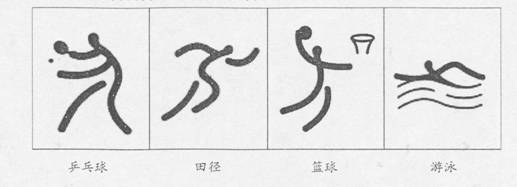 乒乓球 田径 篮球 游泳